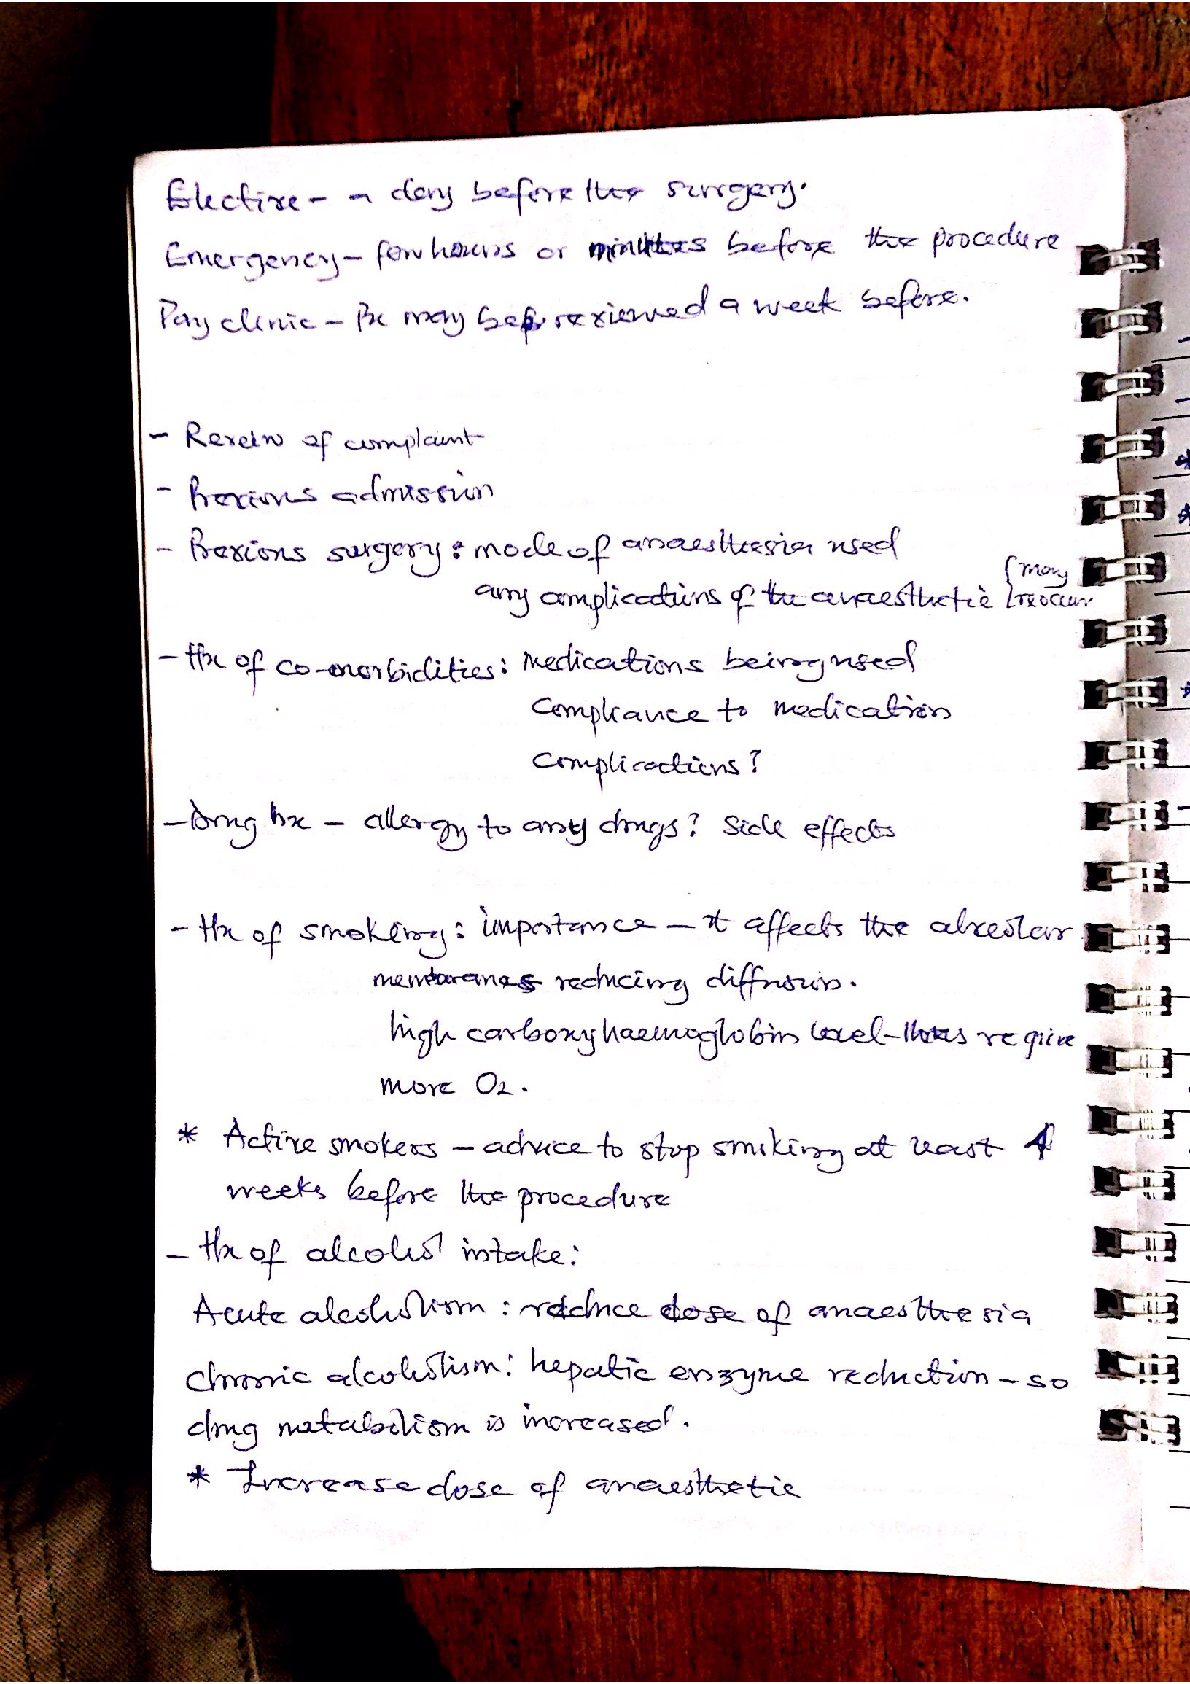 Elective - a day before the surgery.
Emergency - few hours or minutes before the procedure
Day clinic - Px may be reviewed a week before.
- Review of complaint
- Previous admission
- Previous surgery: mode of anaesthesia used
any complications of the anaesthetic {may reoccur
- Hx of co-morbidities: medications being used
compliance to medication
complications?
- Drug hx - allergy to any drugs? Side effects
- Hx of smoking: importance - it affects the alveolar
membranes reducing diffusion.
high carboxyhaemoglobin level - thus require
more O2.
* Active smokers - advice to stop smiking at least 4
weeks before the procedure
- Hx of alcohol intake:
Acute alcoholism: reduce dose of anaesthesia
chronic alcoholism: hepatic enzyme reduction - so
drug metabolism is increased.
* Increase dose of anaesthetic